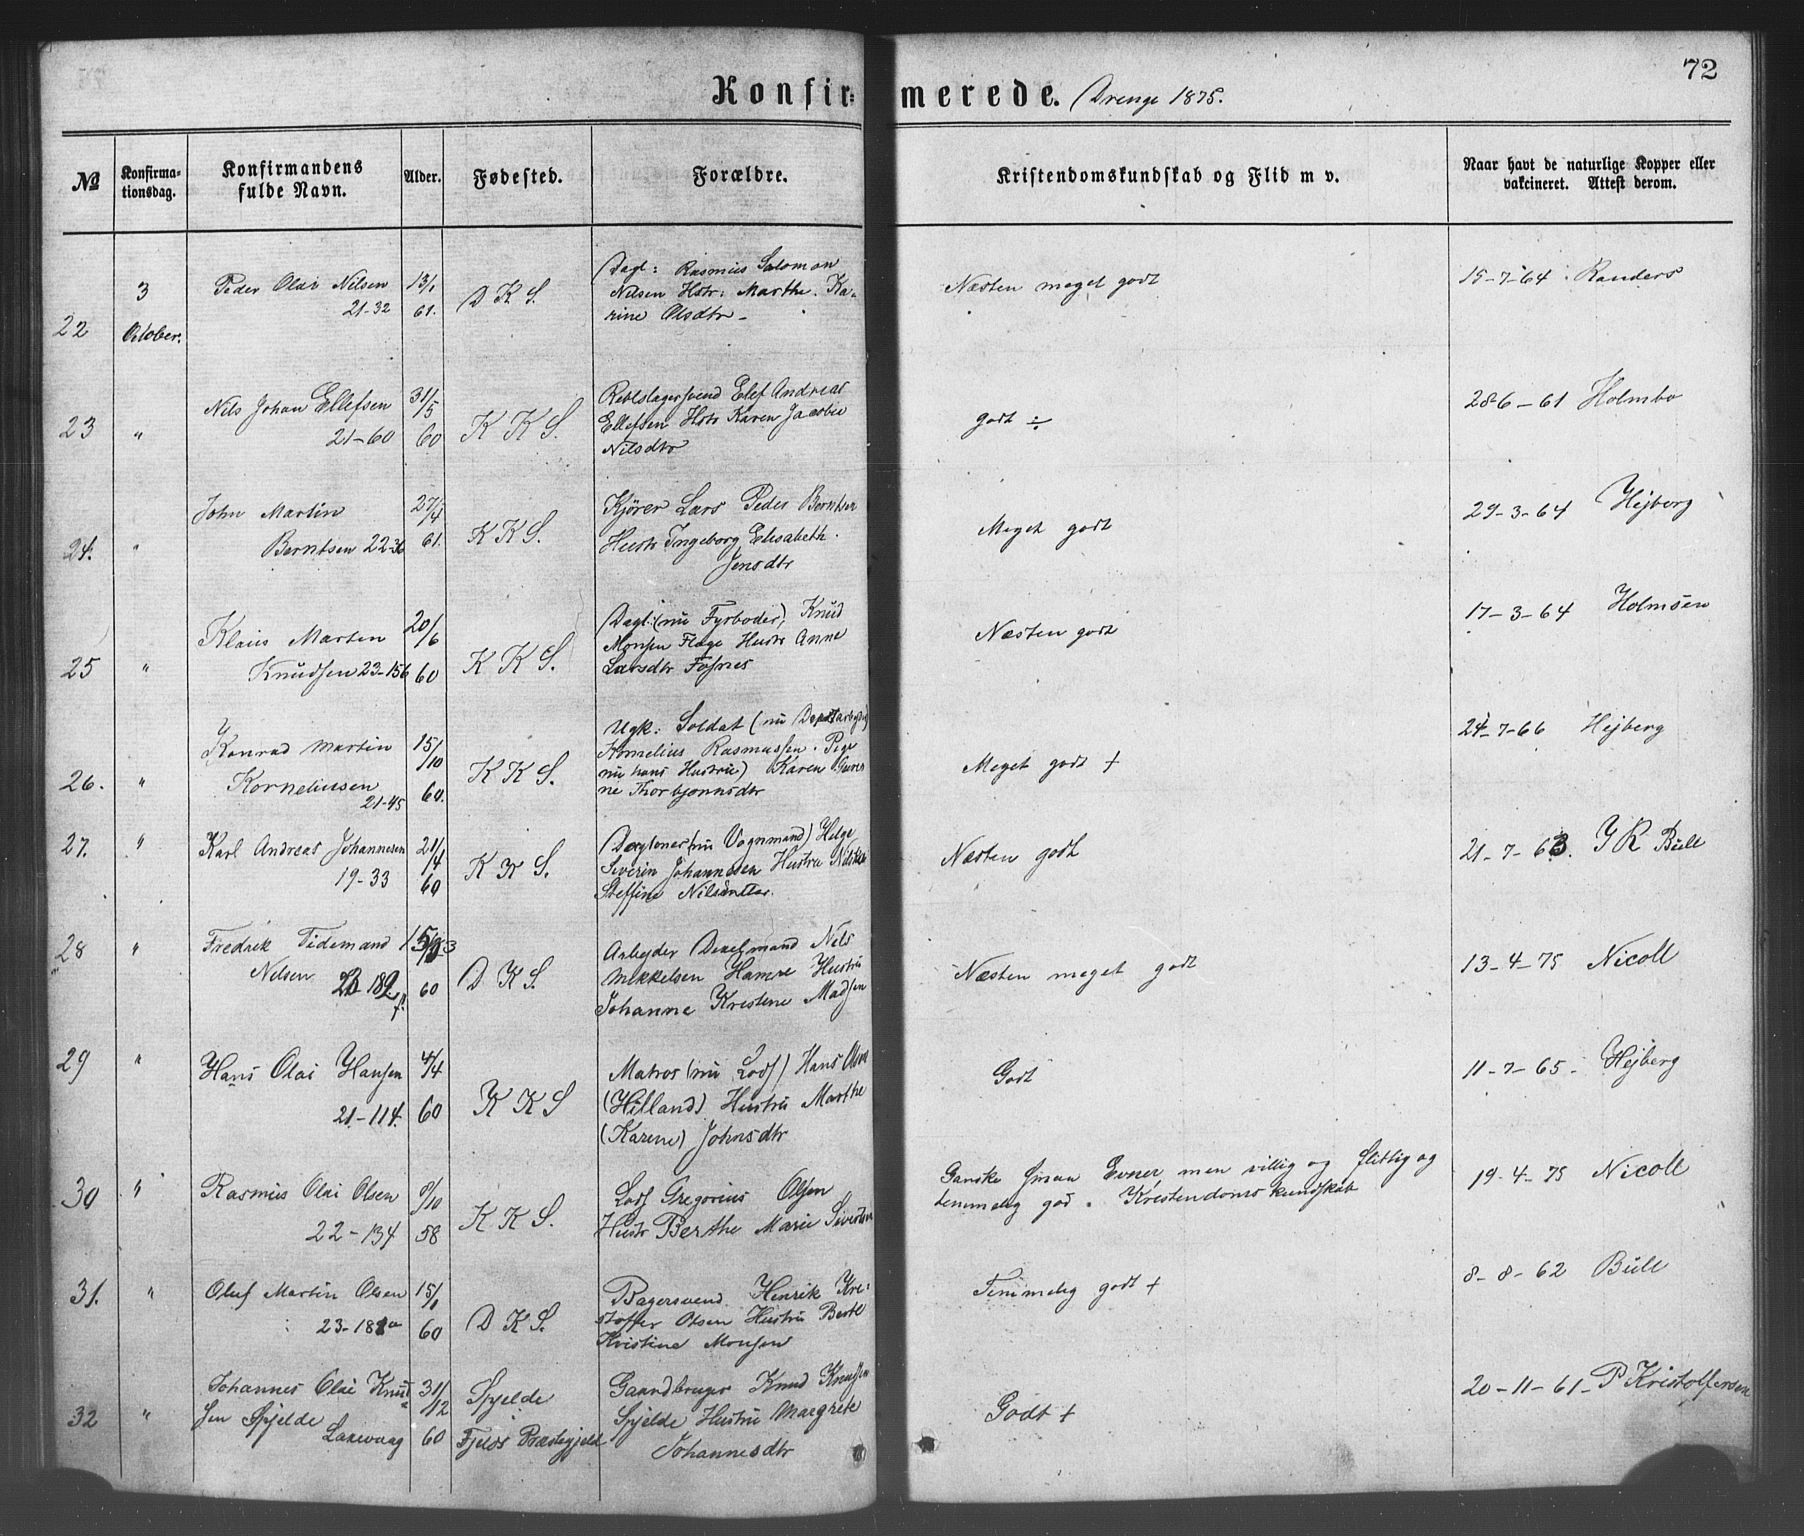 72
Konfirmerede. Drenge 1875.
№
Konfirma-
tionsdag.
Konfirmandens
fulde Navn.
Alder.
Fødested.
Forældre.
Kristendomskundskab og Flid m v.
Naar havt de naturlige Kopper eller
vakcineret. Attest derom.
22
3
October.
Peder Olai Nilsen
21-32
13/1
61.
D K S.
Dagl: Rasmus Salomon
Nilsen Hstr: Marthe Ka-
rine Olsdtr
Næsten meget godt
15-7-64 Randers
23
"
Nils Johan Ellefsen
21-60
31/5
60
K K S.
Rebslagersvend Elef Andreas
Ellefsen Hstr Karen Jacobie
Nilsdtr
godt ÷
28-6-61 Holmbo
24.
"
John Martin
Berntsen 22-36
27/4
61.
K K S.
Kjører Lars Peder Berntsen
Hustr Ingeborg Elisabeth
Jensdtr
Meget godt
29-3-64 Hejberg
25
"
Klaus Marten
Knudsen 23-156
20/6
60
K K S.
Dagl: (nu Fyrbøder) Knud
Monsen Flage Hustr Anne
Larsdtr Fosnes
Næsten godt
17-3-64 Holmsen
26.
"
Konrad Martin
Korneliussen
21-45
15/10
60.
K K S.
Ugk: Soldat (nu
Kornelius Rasmussen. Pige
nu hans Hustru) Karen
ne Thorbjørnsdtr
Meget godt +
24-7-66 Hejberg
27.
"
Karl Andreas Johannesen
19-33
21/4
60
K K S.
(nu Vognmand) Helge
Severin Johannesen Hustru
Steffine
Næsten godt
21-7-63. J R Bull
28
"
Fredrik Tidemand
Nilsen
60
D K S.
Arbejder Nels
Mikkelsen Hamre Hustru
Johanne Kristine Madsen
Næsten meget godt
13-4-75 Nicoll
29
"
Hans Olai Hansen
21-114.
4/4
60
K K S
Matros (nu Lods) Hans Olsen
(Hilland) Hustru Marthe
(Karene) Johnsdtr
Godt
11-7-65- Hejberg
30
"
Rasmus Olai Olsen
22-134
8/10
58
K K S.
Lods Gregorius Olsen
Hustr Berthe Marie
Ganske smaa Evner, men villig og flittig og
temmelig god Kristendomskundskab
19-4-75 Nicoll
31.
"
Oluf Martin Olsen
15/1
60
D K S.
Bagersvend Henrik Kri-
stoffer Olsen Hustru Berte
Kristine Monsen
Temmelig godt +
8-8-62 Bull
32
"
Johannes Olai Knud-
sen Spjelde
Laxevaag
31/12
60
Spjelde
Fjelds Præstegjeld
Gaardbruger Knud Knudsen
Spjelde Hustru Margrete
Johannesdtr
Godt +
20-11-61- P Kristoffersen